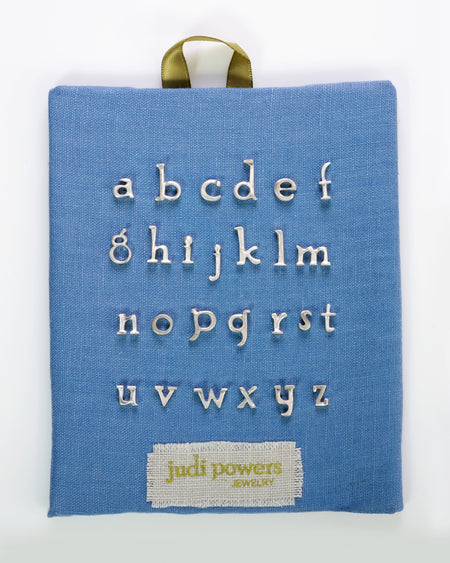 a b c d e f
g h i j k l m
n o p q r s t
u v w x y z
judi powers
JEWELRY